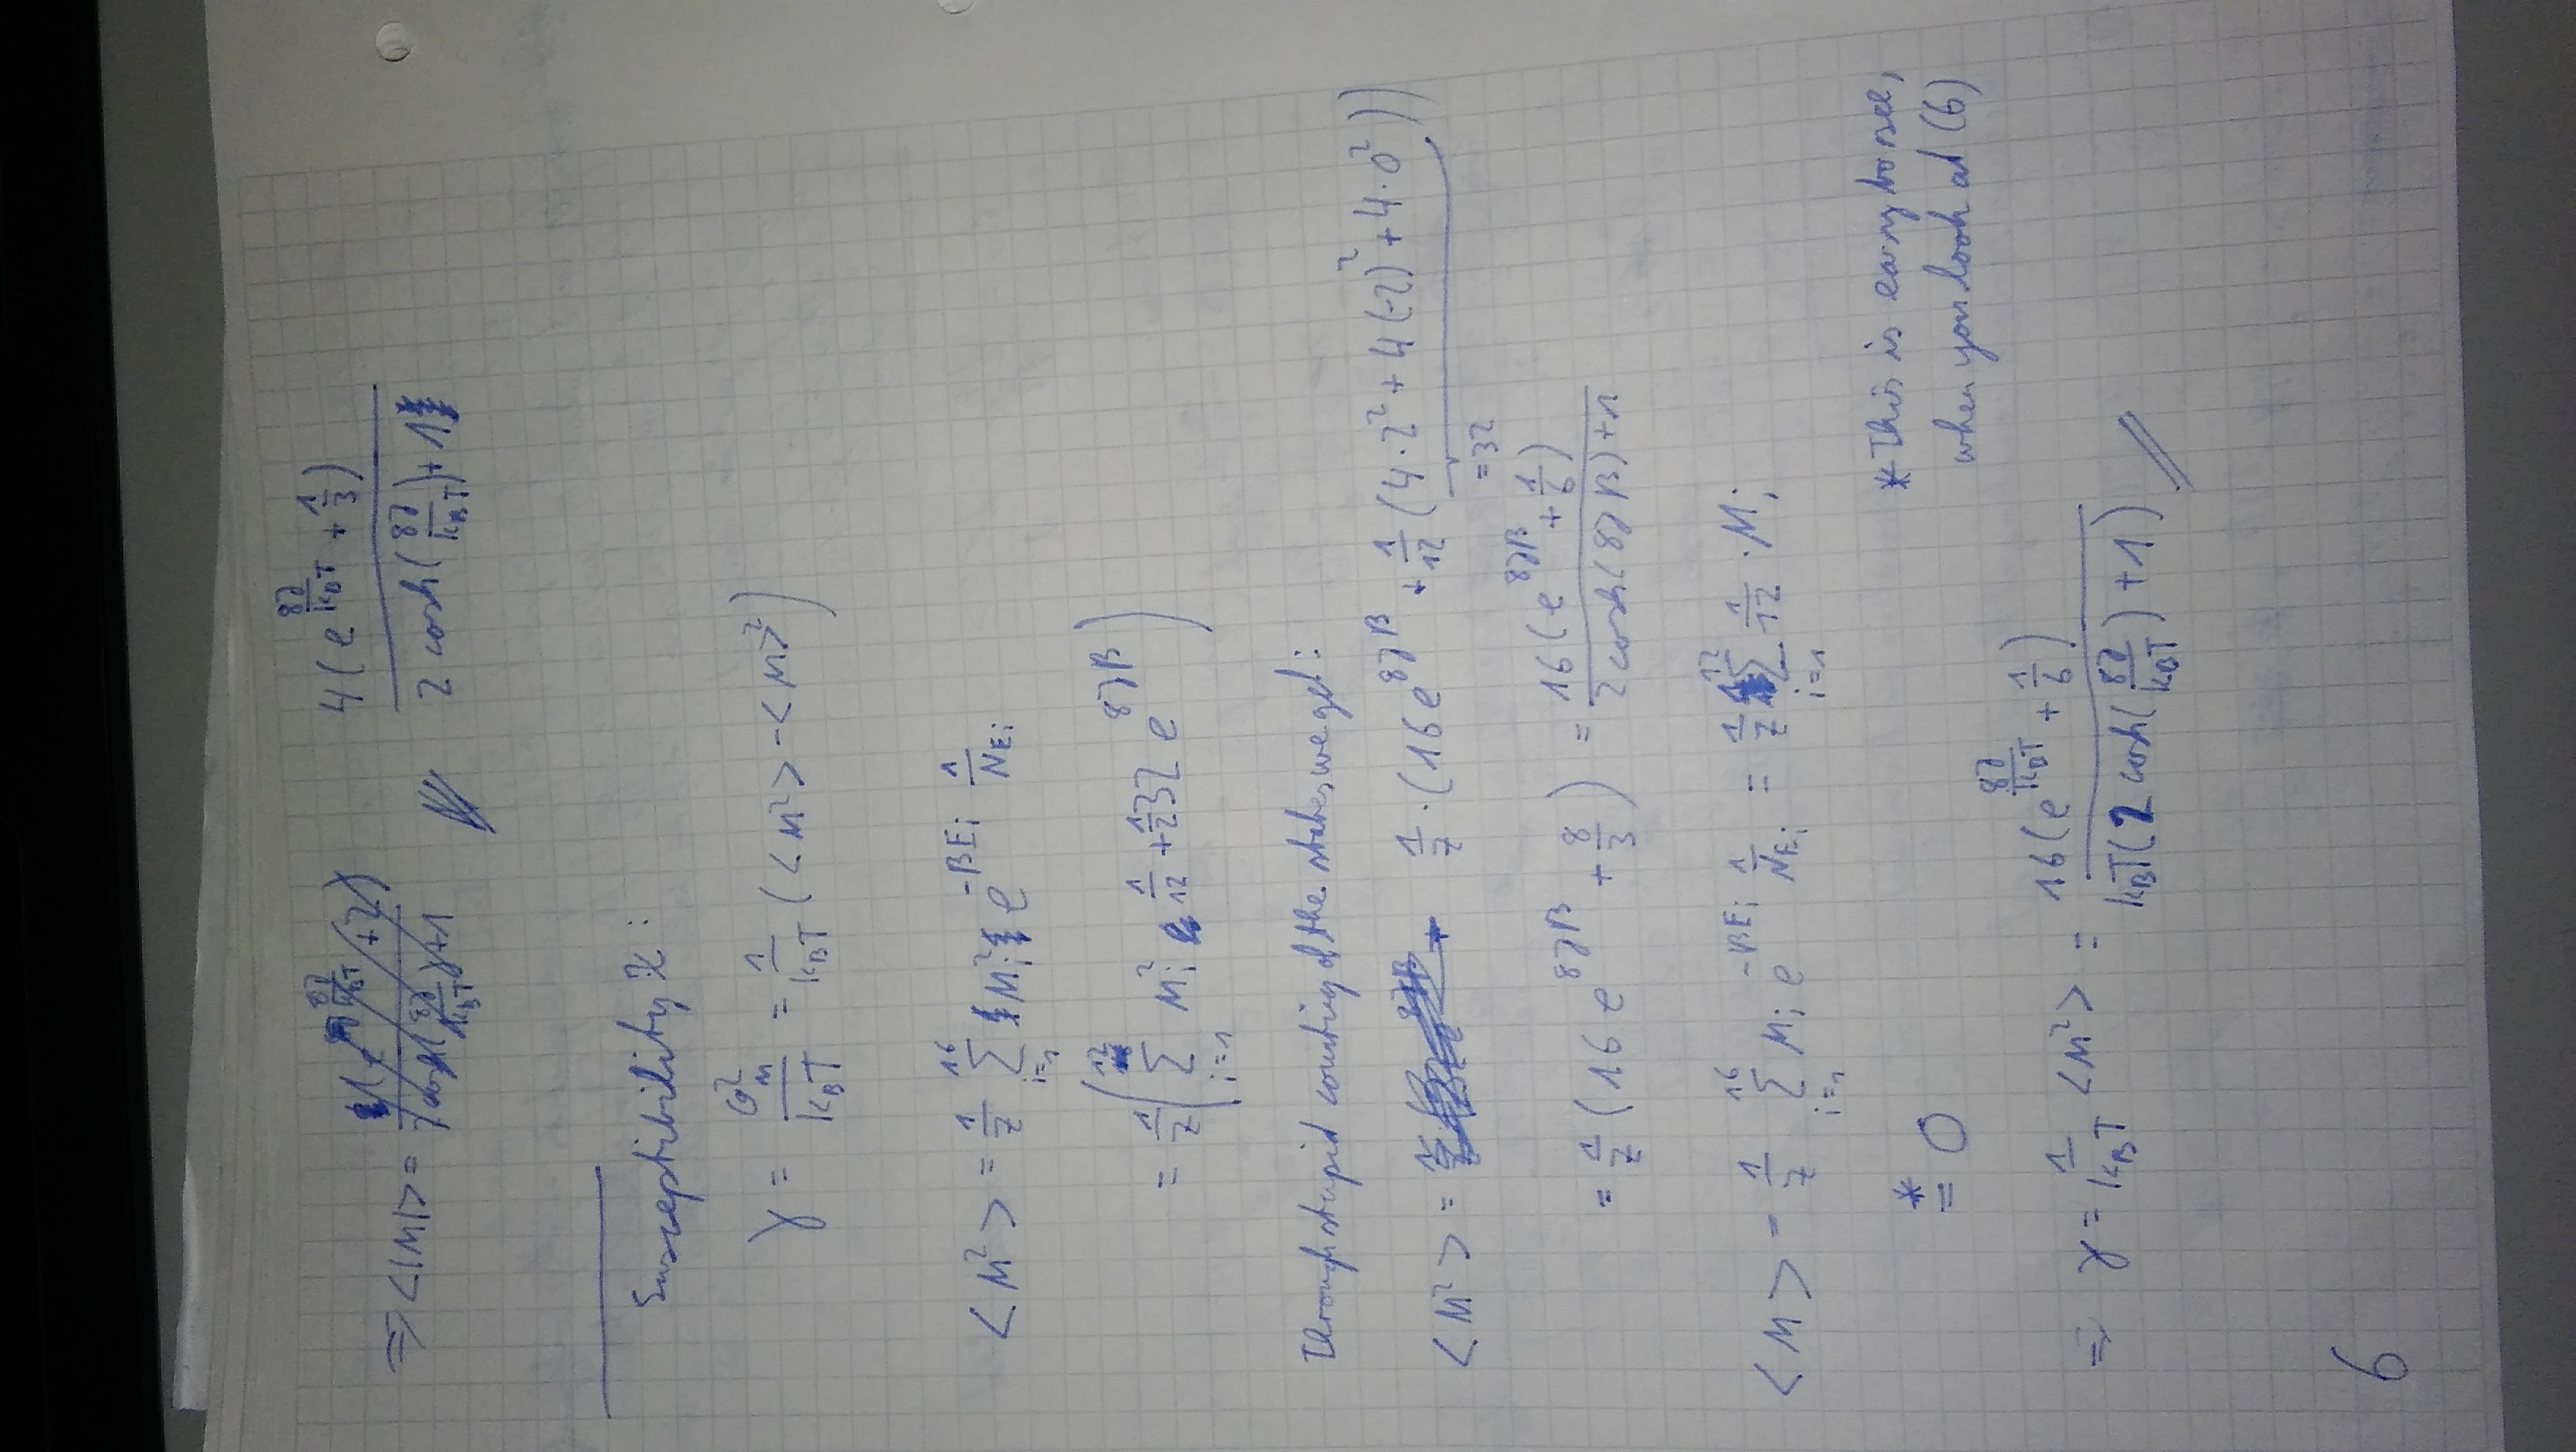 ⇒ <|M|> = 4(e^{8J/k_BT} + 1/3) / (2 cosh(8J/k_BT) + 1)
Susceptibility χ:
γ = σ_M^2 / k_BT = 1/k_BT (<M^2> - <M>^2)
<M^2> = 1/Z Σ_{i=1}^{16} M_i^2 e^{-βE_i} 1/N_{E_i}
= 1/Z ( Σ_{i=1}^{12} M_i^2 1/12 + 1/2 32 e^{8Jβ} )
Through stupid counting of the states we get:
<M^2> = 1/Z · (16 e^{8Jβ} + 1/12 (4·2^2 + 4(-2)^2 + 4·0^2))
= 32
= 1/Z (16 e^{8Jβ} + 8/3) = 16(e^{8Jβ} + 1/6) / (2 cosh(8Jβ) + 1)
<M> = 1/Z Σ_{i=1}^{16} M_i e^{-βE_i} 1/N_{E_i} = 1/Z Σ_{i=1}^{12} 1/12 · M_i
* This is easy to see,
=* 0
when you look at (6)
⇒ γ = 1/k_BT <M^2> = 16(e^{8J/k_BT} + 1/6) / (k_BT(2 cosh(8J/k_BT) + 1))
6